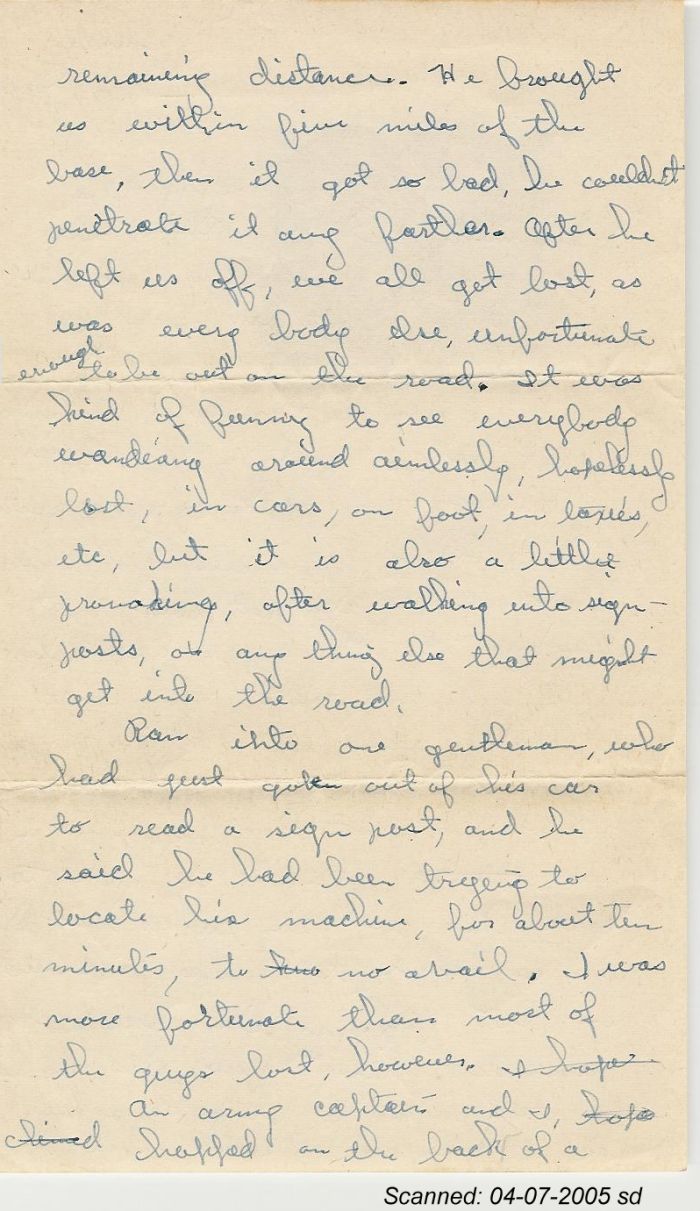 remaining distance. He brought
us within five miles of the
base, then it got so bad, he couldn't
penetrate it any farther. After he
left us off, we all got lost, as
was every body else, unfortunate
enough to be out on the road. It was
kind of funny to see everybody
wandering around aimlessly, hopelessly
lost, in cars, on foot, in taxies,
etc, but it is also a little
provoking, after walking into sign-
posts, or any thing else that might
get into the road.
Ran into one gentleman, who
had just goten out of his car
to read a sign post, and he
said he had been tryeing to
locate his machine, for about ten
minutes, to no avail. I was
more fortunate than most of
the guys lost, however. I hope
An army captain and I, hope
hopped on the back of a
Scanned: 04-07-2005 sd